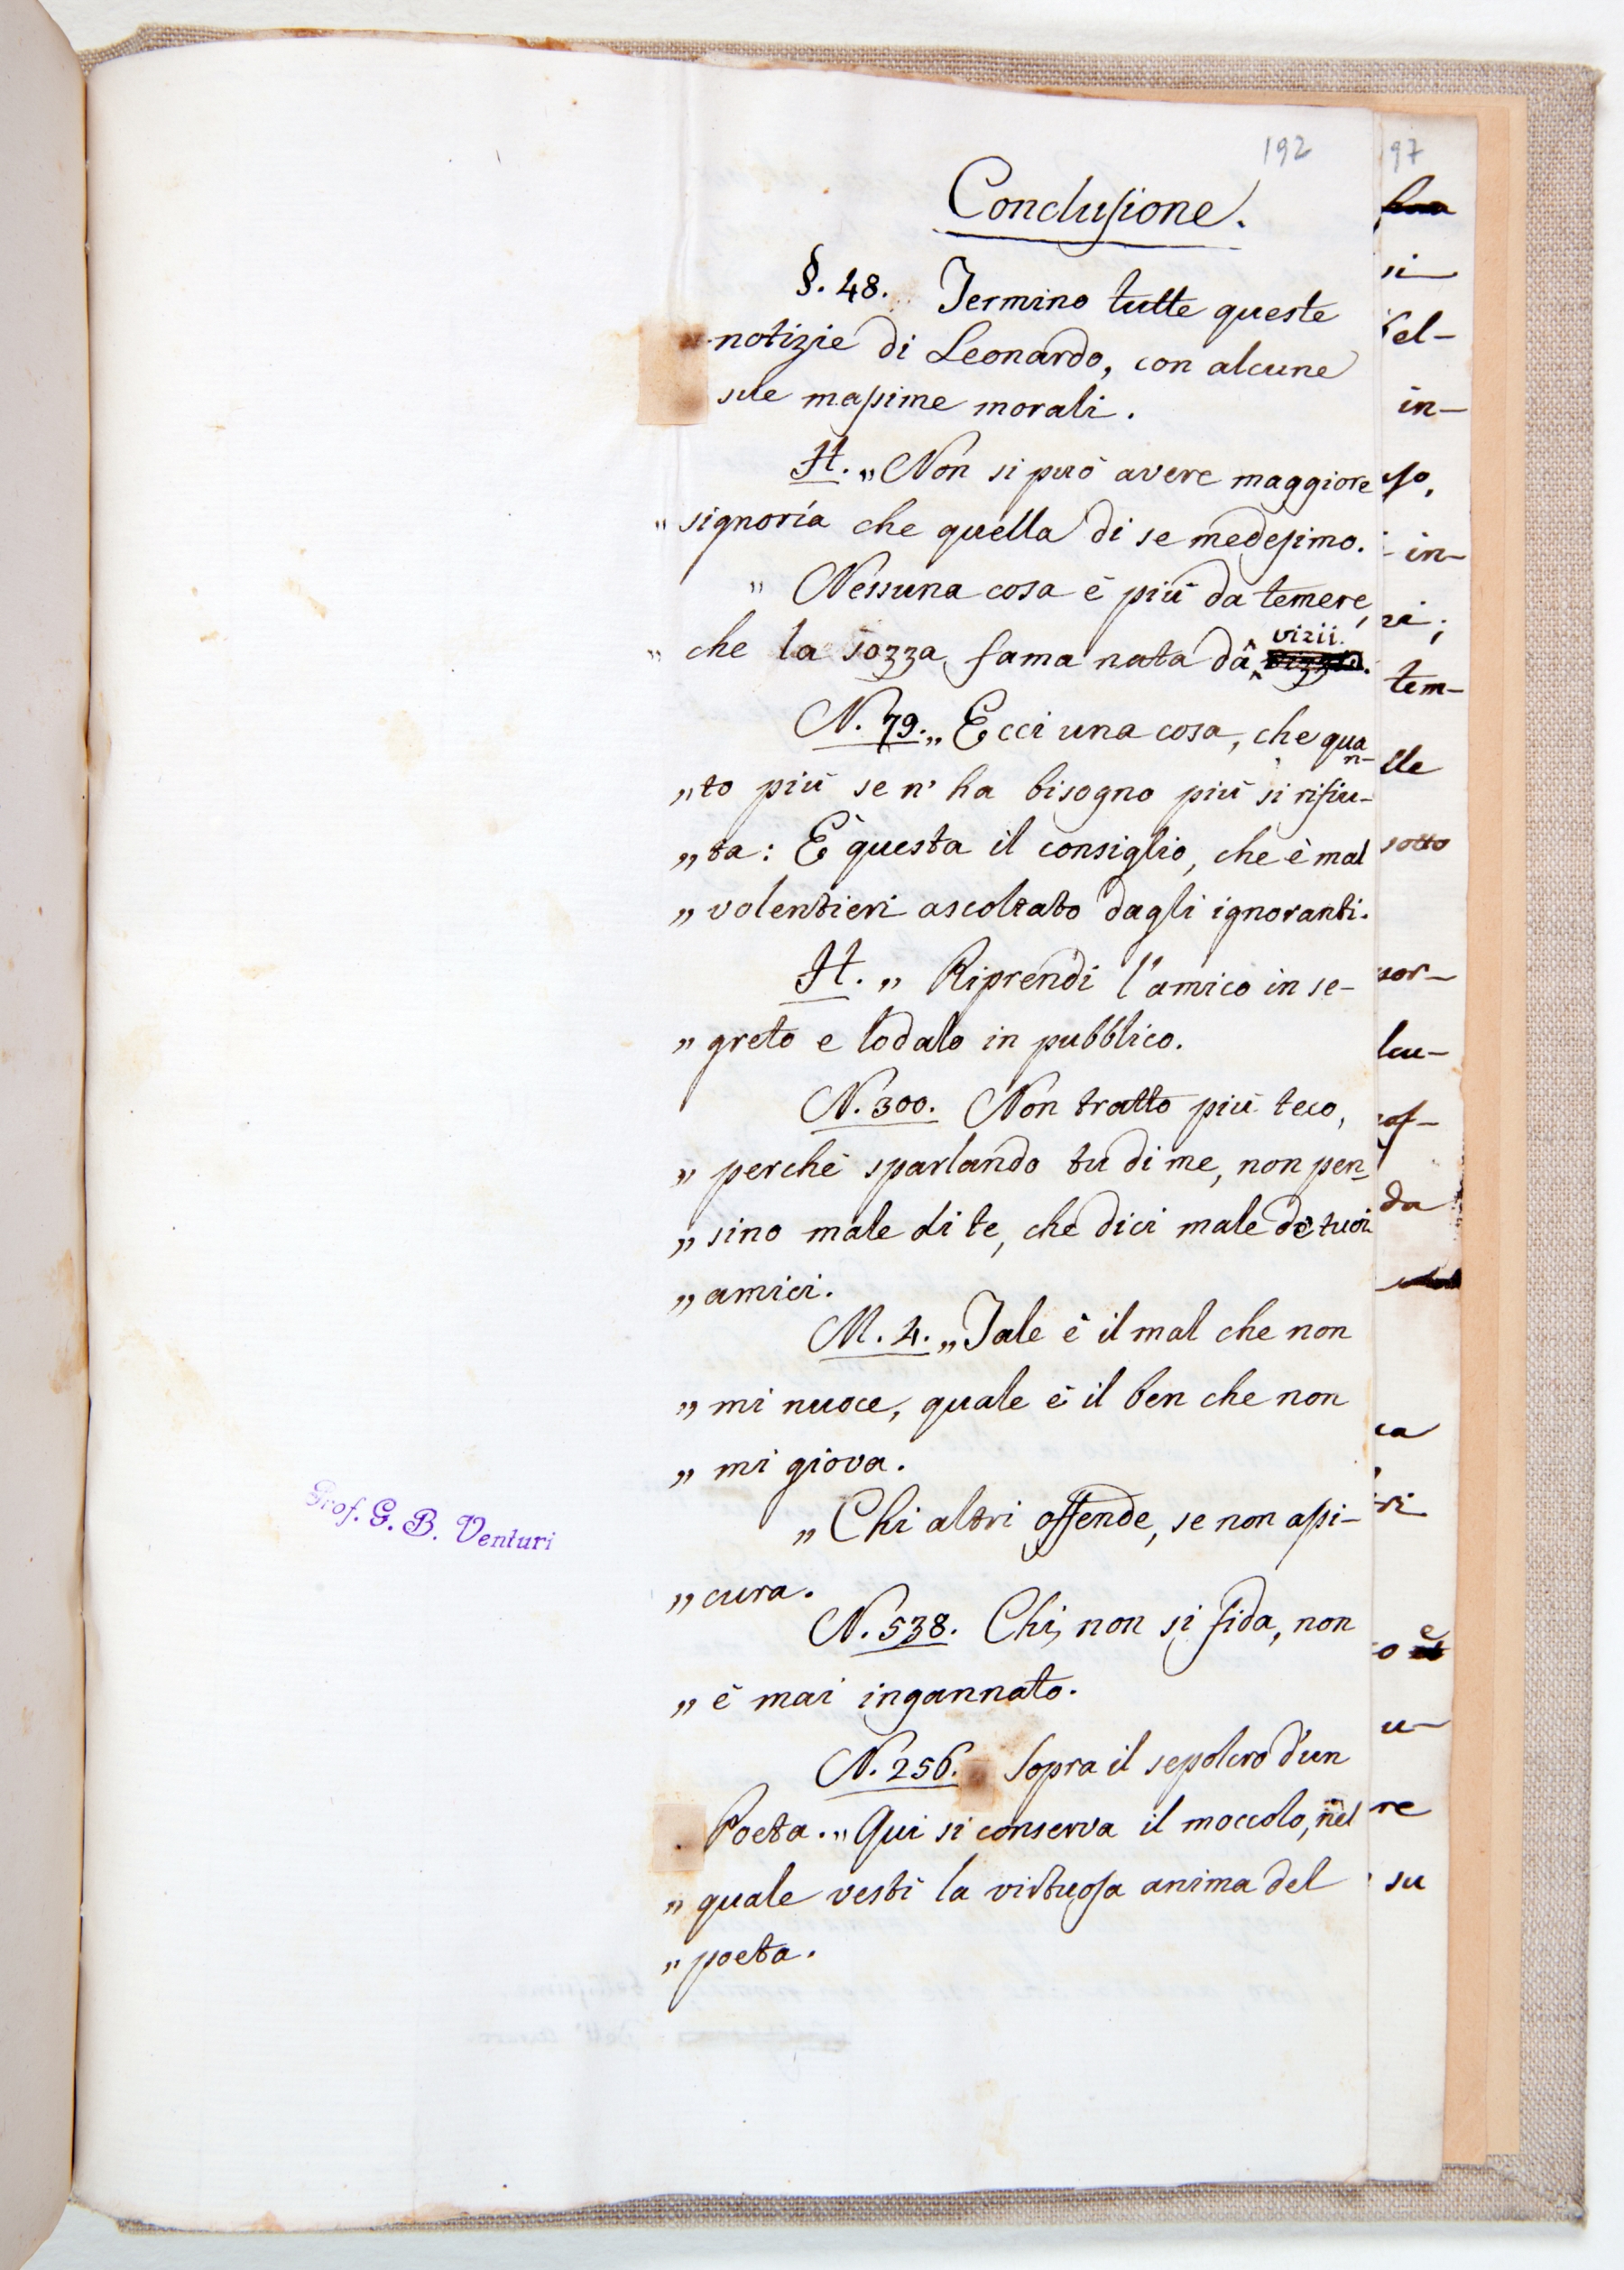 192
Conclusione.
§. 48. Termino tutte queste
notizie di Leonardo, con alcune
sue massime morali.
H. „ Non si può avere maggiore
„ signorìa che quella di se medesimo.
„ Nessuna cosa è più da temere,
„ che la sozza fama nata da' vizii.
N. 79. „ Ecci una cosa, che quan-
„ to più se n' ha bisogno più si rifiu-
„ ta: E questa il consiglio, che è mal
„ volentieri ascoltato dagli ignoranti.
H. „ Riprendi l'amico in se-
„ greto e lodalo in pubblico.
N. 300. Non tratto più teco,
„ perchè sparlando tu di me, non pen-
„ sino male di te, che dici male de tuoi
„ amici.
M. 4. „ Tale è il mal che non
„ mi nuoce, quale è il ben che non
„ mi giova.
„ Chi altri offende, se non assi-
„ cura.
N. 538. Chi non si fida, non
„ è mai ingannato.
N. 256. Sopra il sepolcro d'un
Poeta. „ Qui si conserva il moccolo, nel
„ quale vestì la virtuosa anima del
„ poeta.
Prof. G. B. Venturi
97
si
el-
in-
so,
in-
zi;
tem-
lle
sotto
sor-
lu-
of-
da
ca
ri
o è
u-
re
su